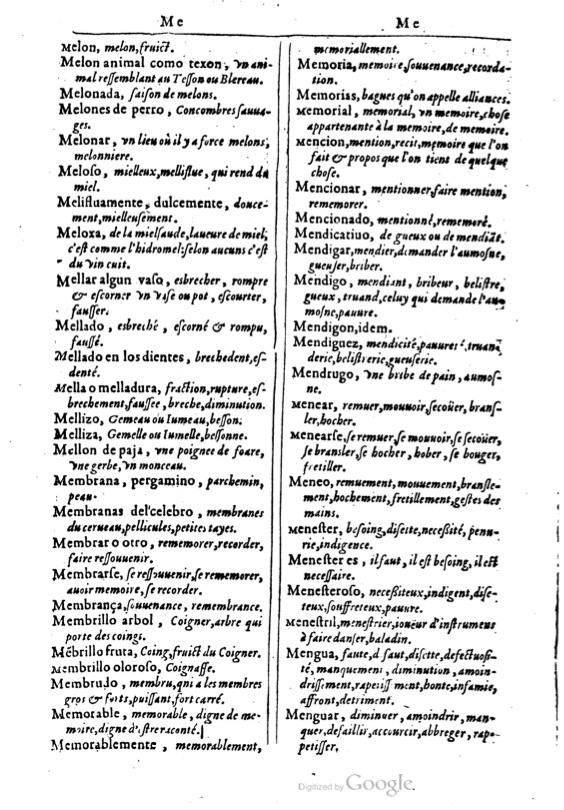 Me
Melon, melon, fruict.
Melon animal como texon, vn ani-
mal ressemblant au Tesson ou Blereau.
Melonada, saison de melons.
Melones de perro, Concombres sauua-
ges.
Melonar, vn lieu où il y a force melons,
melonniere.
Meloso, mielleux, melliflue, qui rend du
miel.
Melifluamente, dulcemente, douce-
ment, mielleusement.
Meloxa, de la mielsaude, laueure de miel,
c'est comme l'hidromel: selon aucuns c'est
du vin cuit.
Mellar algun vaso, esbrecher, rompre
& escorner vn vase ou pot, escourter,
fausser.
Mellado, esbreché, escorné & rompu,
faussé.
Mellado en los dientes, brechedent, es-
denté.
Mella o melladura, fraction, rupture, es-
brechement, faussee, breche, diminution.
Mellizo, Gemeau ou Iumeau, besson.
Melliza, Gemelle ou Iumelle, bessonne.
Mellon de paja, vne poignee de foare,
vne gerbe, vn monceau.
Membrana, pergamino, parchemin,
peau.
Membranas del celebro, membranes
du cerueau, pellicules, petites tayes.
Membrar o otro, rememorer, recorder,
faire ressouuenir.
Membrarse, se ressouuenir, se rememorer,
auoir memoire, se recorder.
Membrança, souuenance, remembrance.
Membrillo arbol, Coigner, arbre qui
porte des coings.
Mẽbrillo fruta, Coing, fruict du Coigner.
Membrillo oloroso, Coignasse.
Membrudo, membru, qui a les membres
gros & forts, puissant, fort carré.
Memorable, memorable, digne de me-
moire, digne d'estre raconté.
Memorablemente, memorablement,
Me
memoriallement.
Memoria, memoire, souuenance, recorda-
tion.
Memorias, bagues qu'on appelle alliances.
Memorial, memorial, vn memoire, chose
appartenante à la memoire, de memoire.
Mencion, mention, recit, memoire que l'on
fait & propos que l'on tient de quelque
chose.
Mencionar, mentionner, faire mention,
rememorer.
Mencionado, mentionné, rememoré.
Mendicatiuo, de gueux ou de mendiãt.
Mendigar, mendier, demander l'aumosne,
gueuser, briber.
Mendigo, mendiant, bribeur, belistre,
gueux, truand, celuy qui demande l'au-
mosne, pauure.
Mendigon, idem.
Mendiguez, mendicité, pauureté, truan-
derie, belistrerie, gueuserie.
Mendrugo, vne bribe de pain, aumos-
ne.
Menear, remuer, mouuoir, secoüer, brans-
ler, hocher.
Menearse, se remuer, se mouuoir, se secoüer,
se bransler, se hocher, hober, se bouger,
fretiller.
Meneo, remuement, mouuement, bransle-
ment, hochement, fretillement, gestes des
mains.
Menester, besoing, disette, necessité, penu-
rie, indigence.
Menester es, il faut, il est besoing, il est
necessaire.
Menesteroso, necessiteux, indigent, dise-
teux, souffreteux, pauure.
Menestril, menestrier, ioueur d'instrumens
à faire danser, baladin.
Mengua, faute, defaut, disette, defectuosi-
té, manquement, diminution, amoin-
drissement, rapetissement, honte, infamie,
affront, detriment.
Menguar, diminuer, amoindrir, man-
quer, defaillir, accourcir, abbreger, rap-
petisser,
Digitized by Google